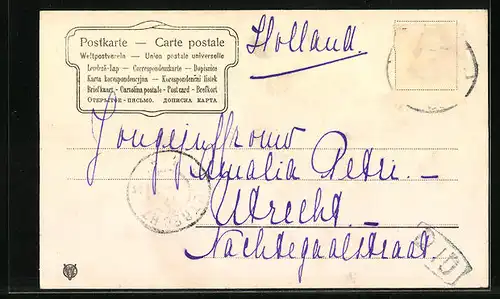 Holland.
Postkarte — Carte postale
Weltpostverein — Union postale universelle
Levelező-lap — Correspondenzkarte — Dopisnice
Karta korespondencyjna — Korespondenční lístek
Briefkaart - Cartolina postale - Postcard - Brefkort
Открытое - письмо. Дописна карта
Jongejuffrouw
Amalia Petri. —
Utrecht. —
Nachtegaalstraat.